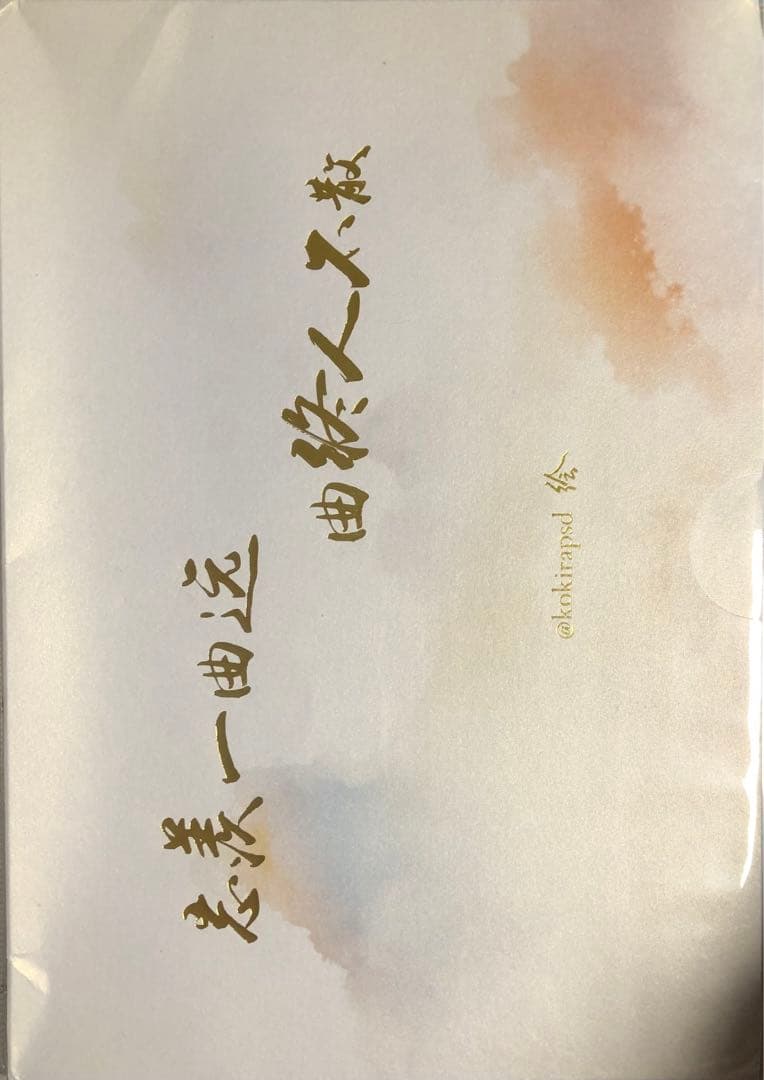 忘羡一曲远
曲终人不散
@kokirapsd 绘